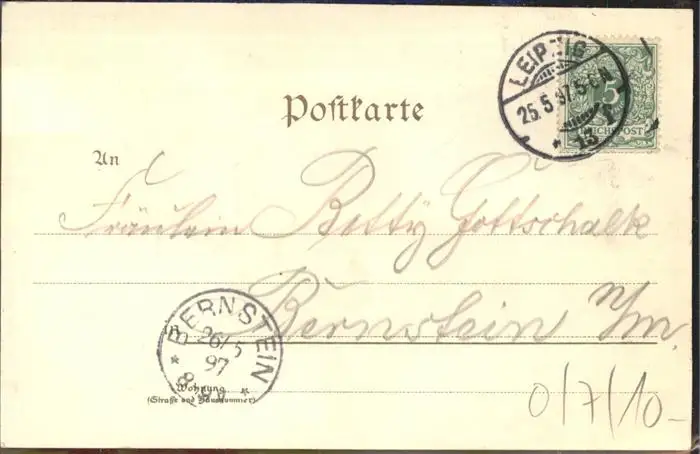 Postkarte
LEIPZIG
25.5.97.5-6N.
* 13 *
5
REICHSPOST
An
Fräulein Betty Gottschalk
Bernstein n/m.
BERNSTEIN
26/5
97
* 8-9V *
Wohnung
(Straße und Hausnummer)
0/7/10-